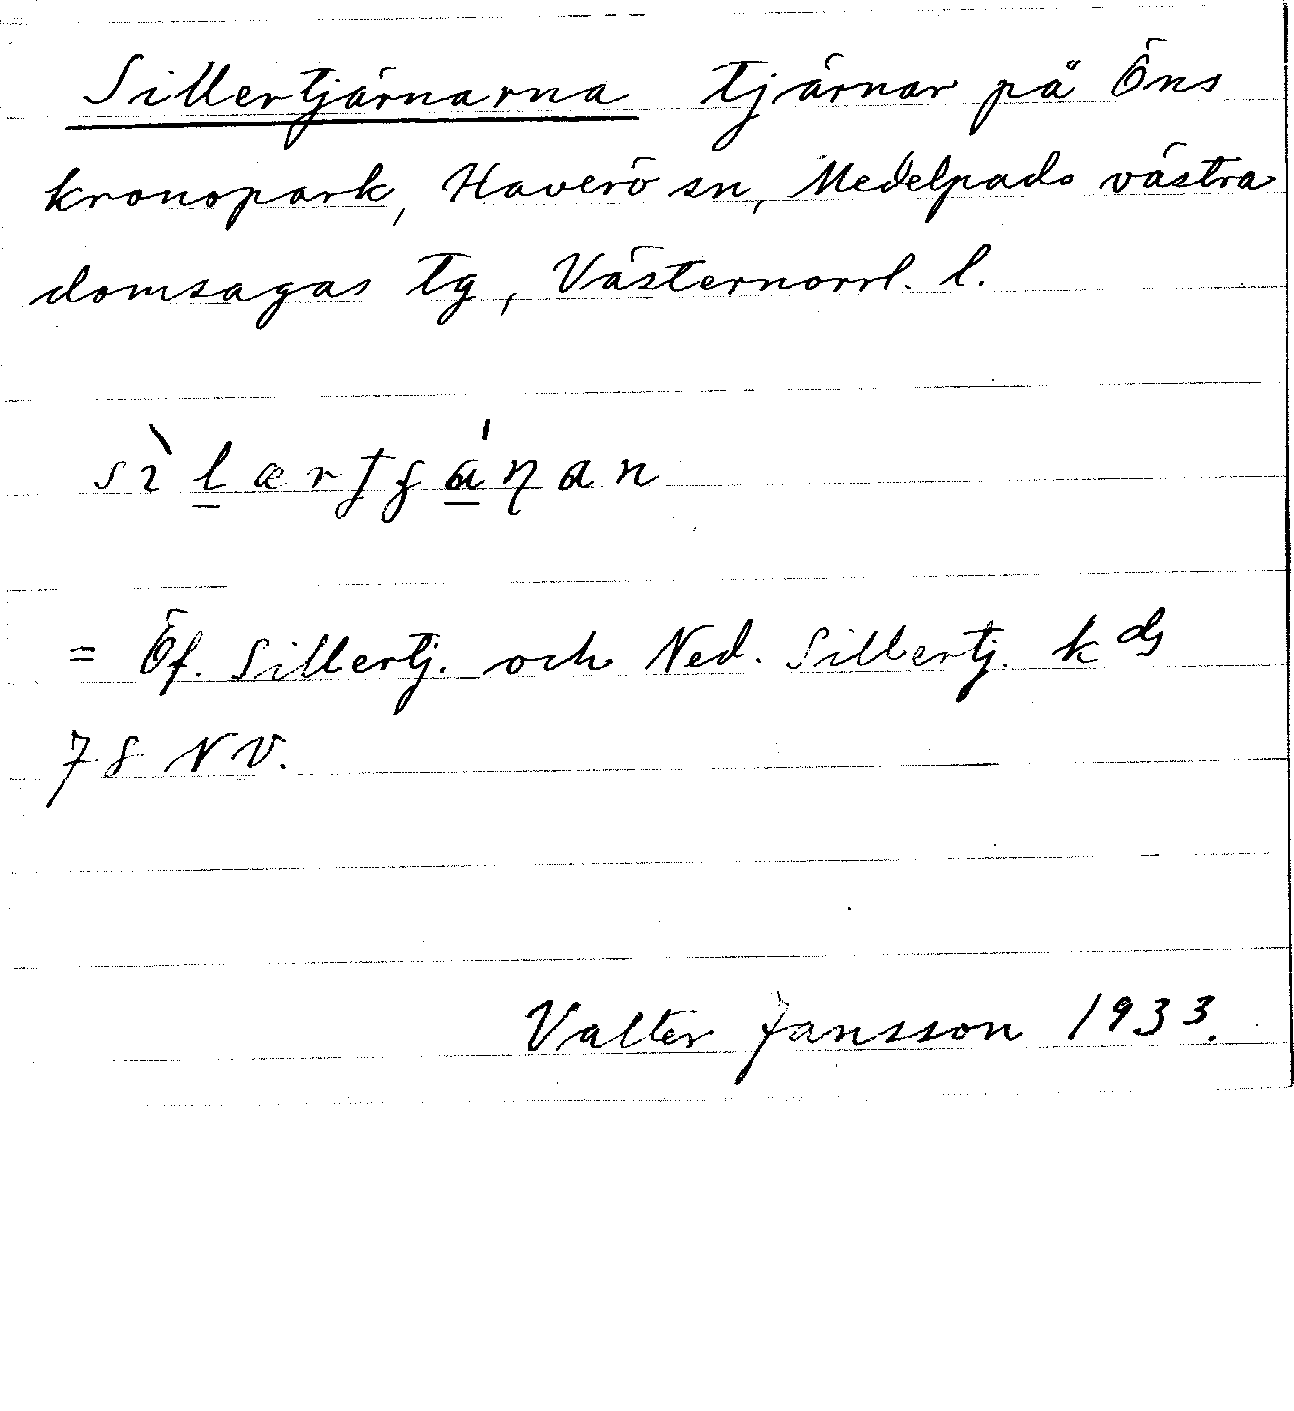 Sillertjärnarna tjärnar på Öns
kronopark, Haverö sn, Medelpads västra
domsagas tg, Västernorrl. l.
= Öf. Sillertj. och Ned. Sillertj. kds
78 NV.
Valter Jansson 1933.